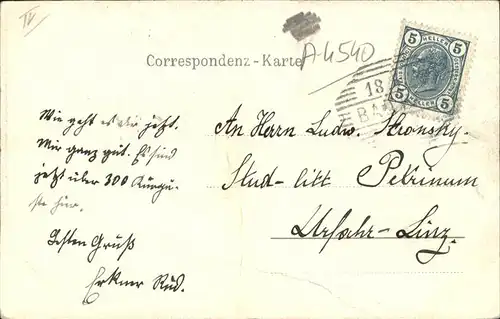 IV
A-4540
5 HELLER 5
5 HELLER 5
Correspondenz-Karte
18
BA
Wie geht es dir jetzt.
Mir ganz gut. Es sind
jetzt über 300 Kurgä-
ste hier.
Besten Gruß
Erkner Rud.
An Herrn Ludw. Stronsky
Stud. litt Petrinum
Urfahr-Linz.